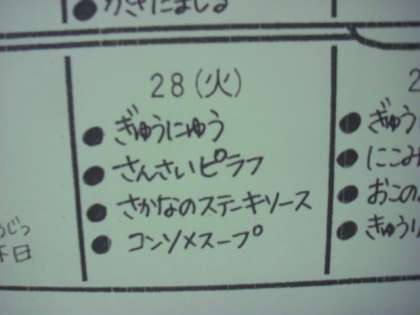 かきたましる
28(火)
ぎゅうにゅう
さんさいピラフ
さかなのステーキソース
コンソメスープ
ぎゅう
にこみ
おこの
きゅうり